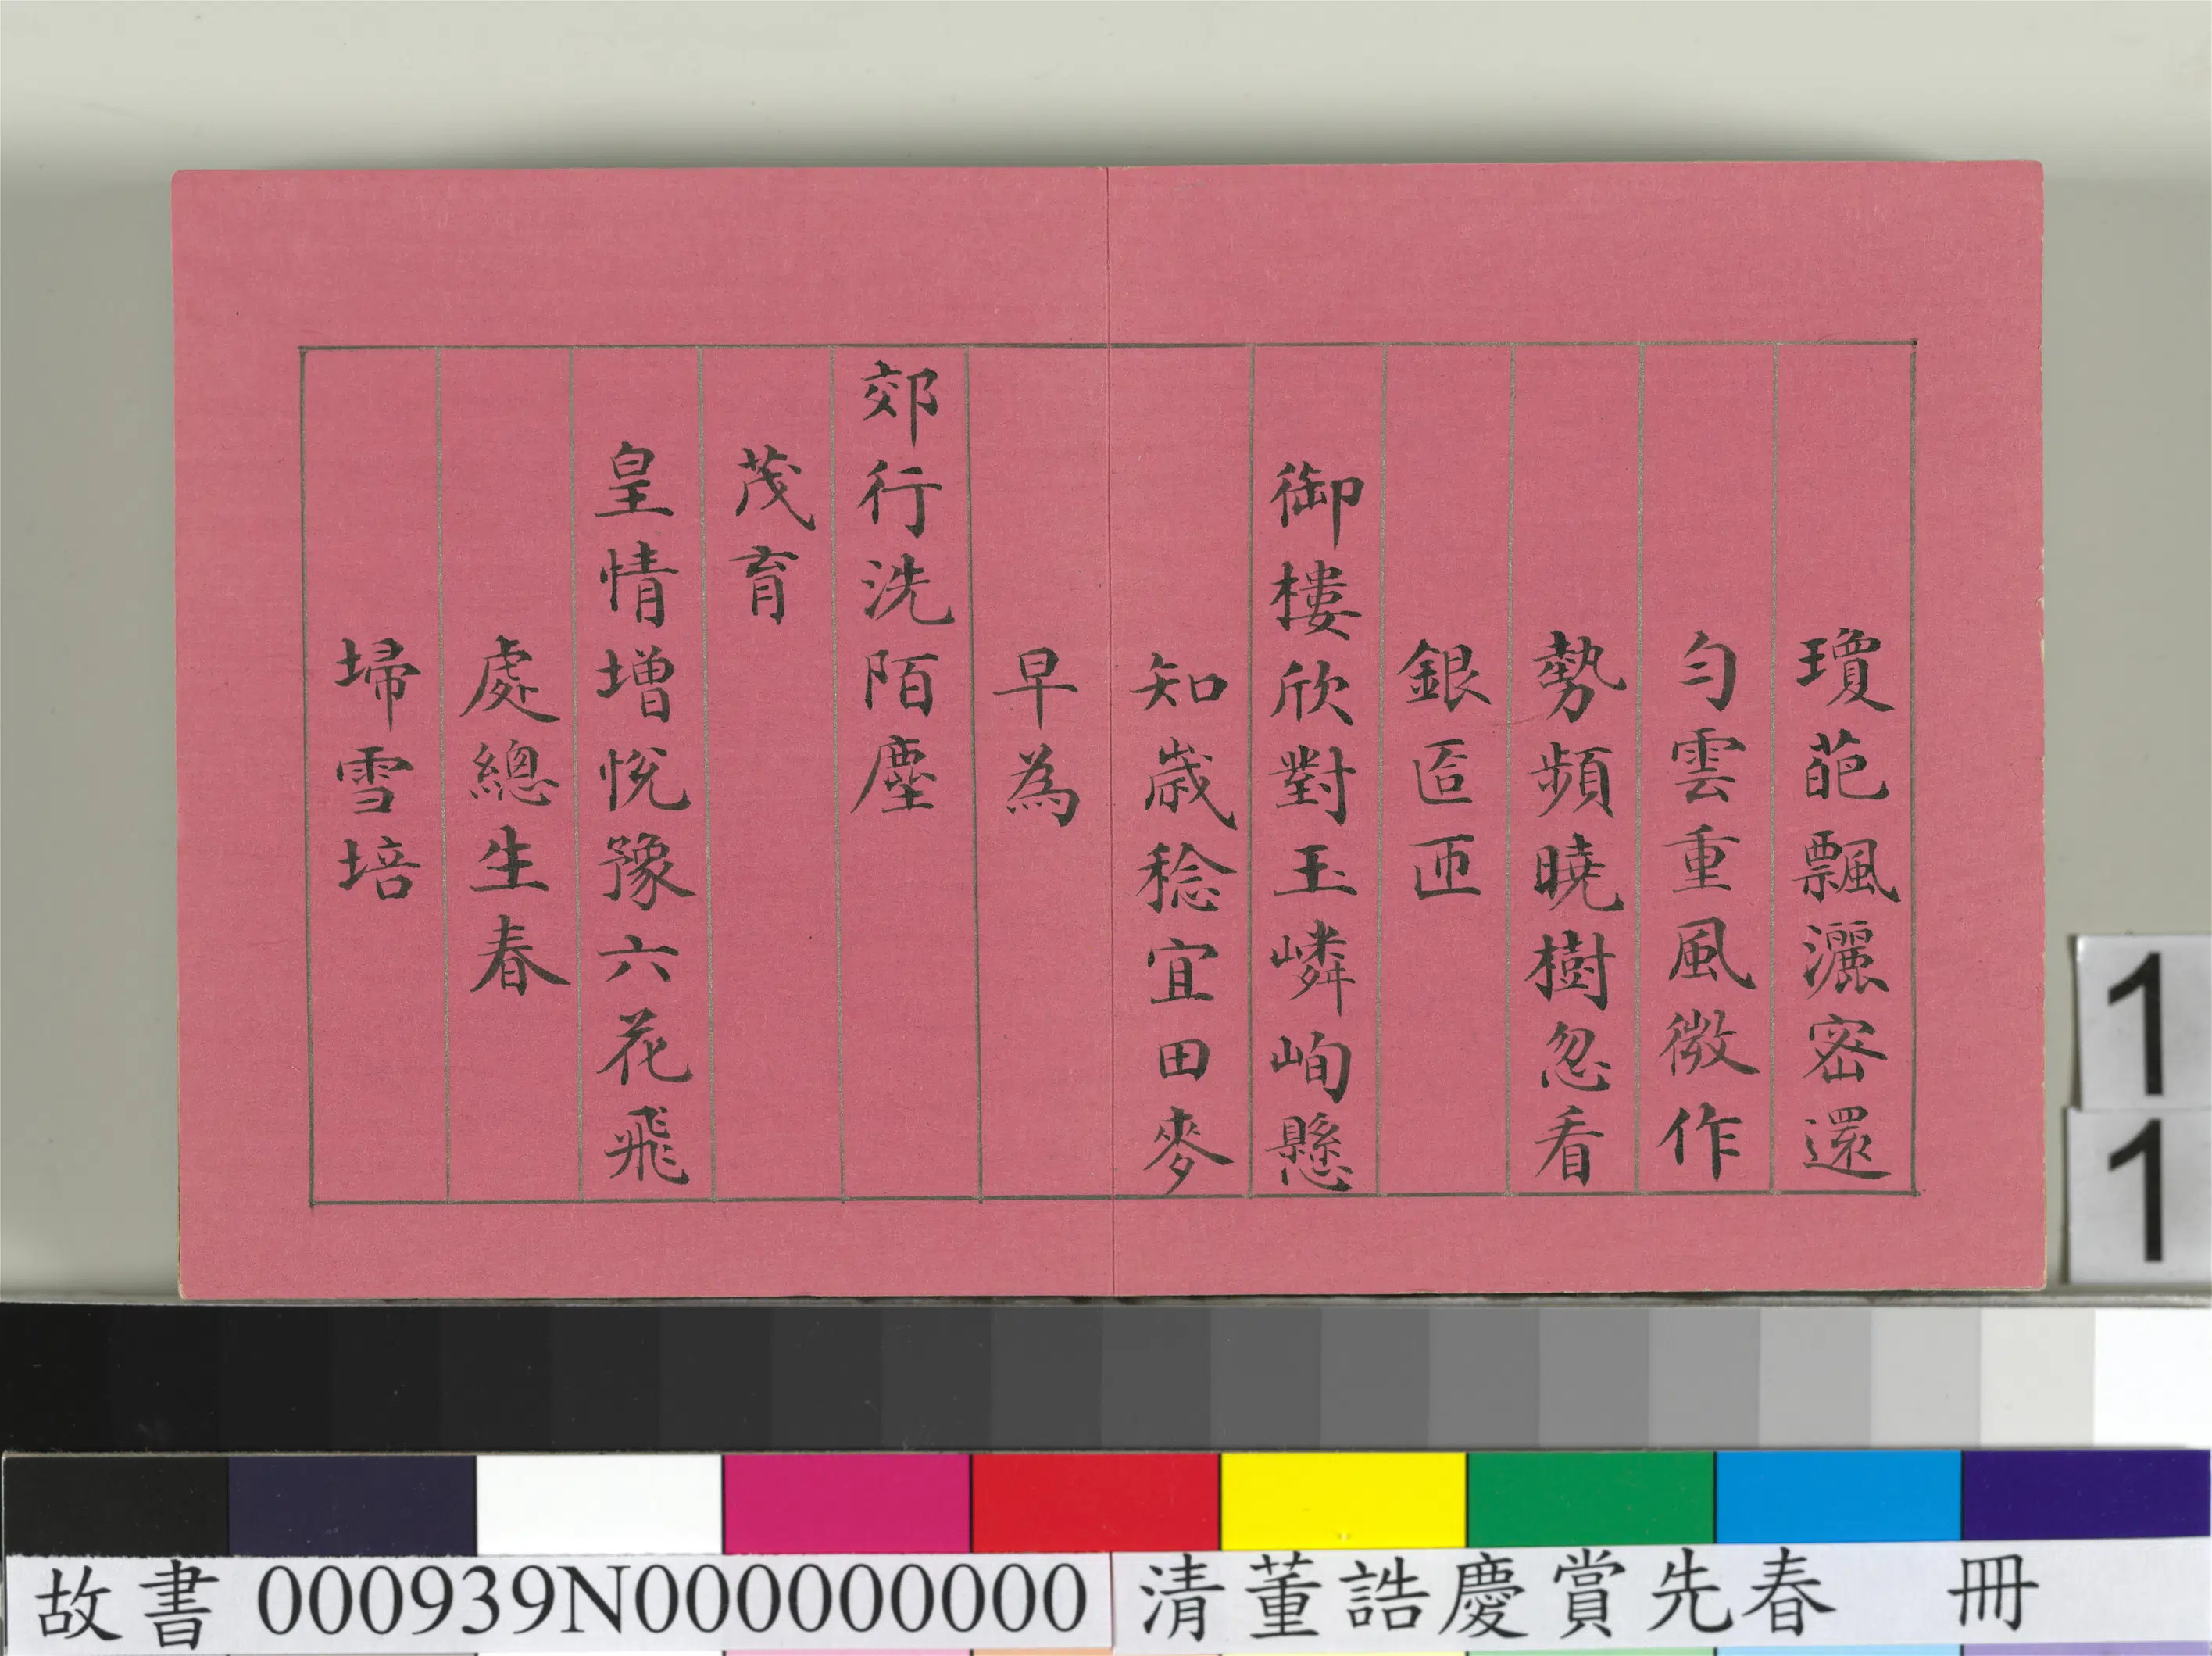 瓊葩飄灑密還
勻雲重風微作
勢頻曉樹忽看
銀匼匝
御樓欣對玉嶙峋懸
知歲稔宜田麥
早為
郊行洗陌塵
茂育
皇情增悅豫六花飛
處總生春
埽雪培
1
1
故書 000939N000000000
清董誥慶賞先春 冊